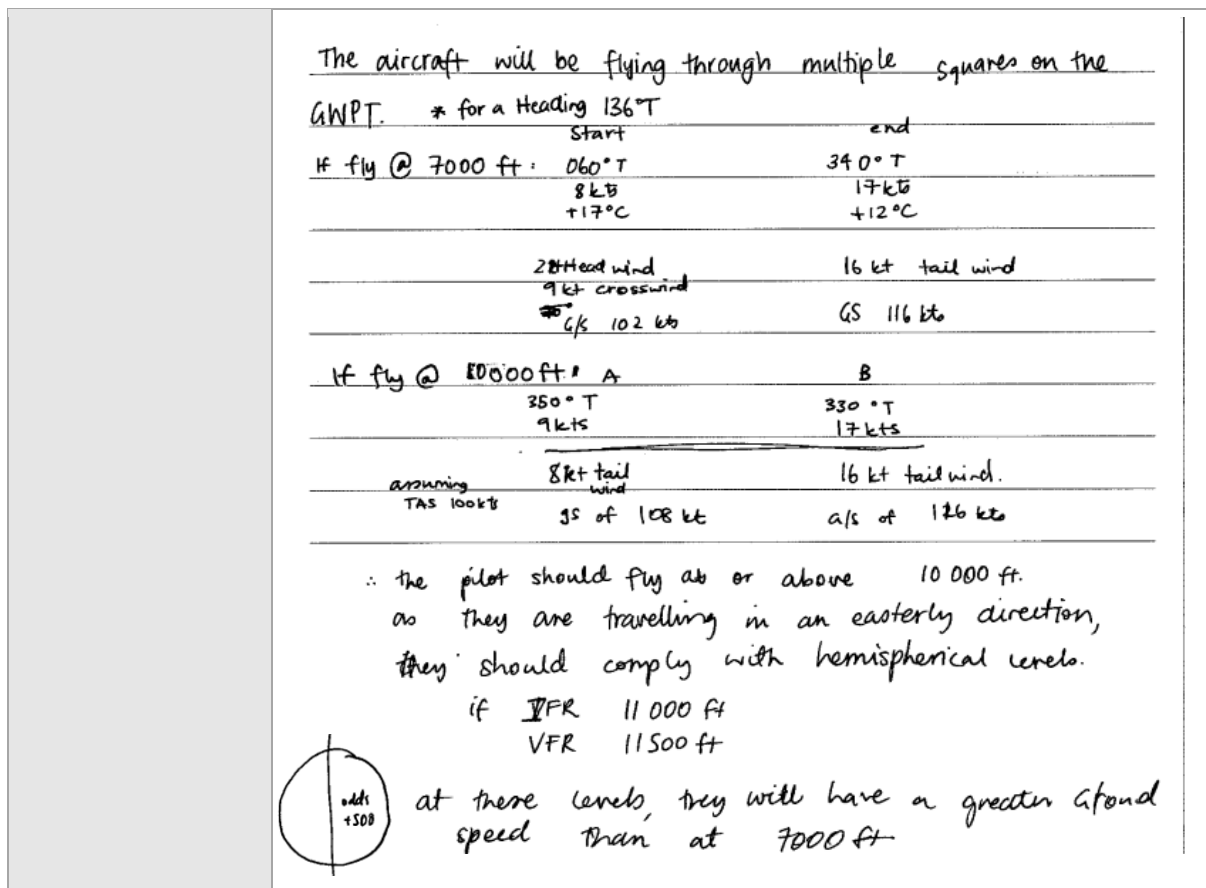 The aircraft will be flying through multiple squares on the
GWPT. * for a Heading 136°T
Start end
If fly @ 7000 ft: 060°T 340°T
8kts 17kts
+17°C +12°C
Head wind 16 kt tail wind
9kt crosswind
G/S 102 kts GS 116 kts
If fly @ 10000ft: A B
350°T 330°T
9kts 17kts
8kt tail wind 16 kt tail wind.
assuming
TAS 100kts gs of 108 kt G/s of kts
∴ the pilot should fly at or above 10 000 ft.
as they are travelling in an easterly direction,
they should comply with hemispherical levels.
if IFR 11 000 ft
VFR 11500 ft
odds
+500
at these levels, they will have a greater Ground
speed than at 7000 ft